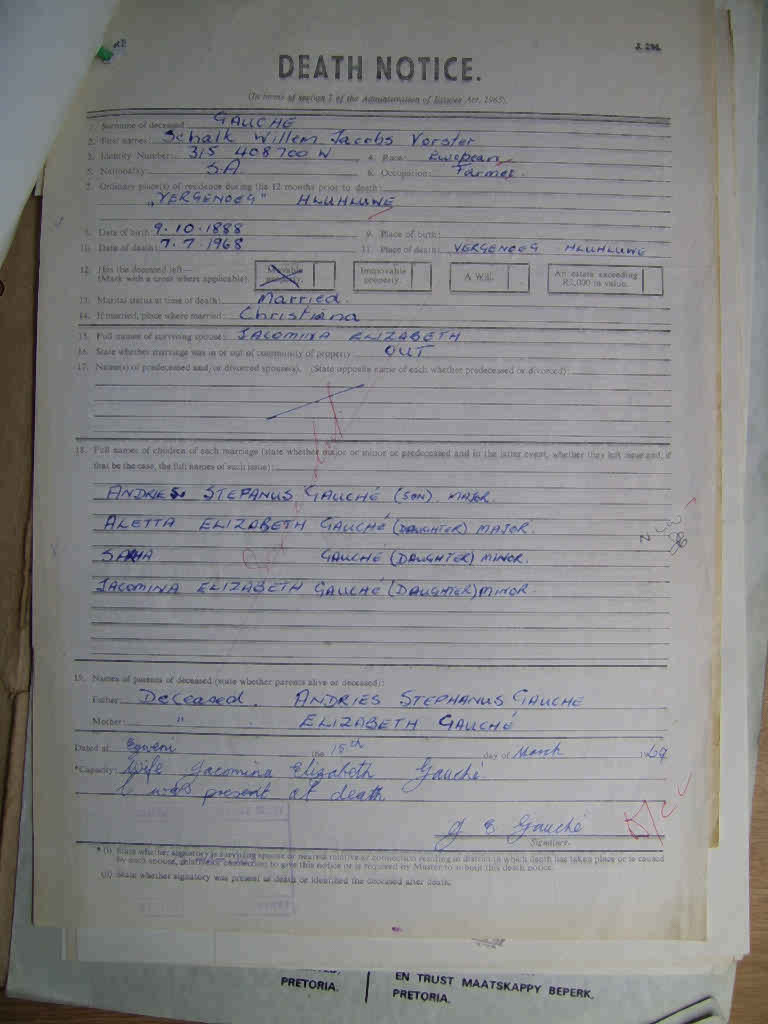 J. 294.
DEATH NOTICE.
(In terms of section 7 of the Administration of Estates Act, 1965).
1. Surname of deceased: GAUCHÉ
2. First names: Schalk Willem Jacobs Vorster
3. Identity Number: 315 408700 W 4. Race: European
5. Nationality: S.A. 6. Occupation: Farmer.
7. Ordinary place(s) of residence during the 12 months prior to death:
"VERGENOEG" HLUHLUWE
8. Date of birth: 9.10.1888 9. Place of birth:
10. Date of death: 7.7.1968 11. Place of death: VERGENOEG HLUHLUWE
12. Has the deceased left— Movable Immovable A Will. An estate exceeding
(Mark with a cross where applicable). property. property. R2,000 in value.
13. Marital status at time of death: Married.
14. If married, place where married: Christiana
15. Full names of surviving spouse: JACOMINA ELIZABETH
16. State whether marriage was in or out of community of property OUT
17. Name(s) of predeceased and/or divorced spouse(s). (State opposite name of each whether predeceased or divorced):
18. Full names of children of each marriage (state whether major or minor or predeceased and in the latter event, whether they left issue and, if
that be the case, the full names of such issue):
ANDRIES STEPANUS GAUCHÉ (SON). MAJOR.
ALETTA ELIZABETH GAUCHÉ (DAUGHTER) MAJOR.
GAUCHÉ (DAUGHTER) MINOR.
JACOMINA ELIZABETH GAUCHÉ (DAUGHTER) MINOR.
19. Names of parents of deceased (state whether parents alive or deceased):
Father: Deceased. ANDRIES STEPHANUS GAUCHÉ
Mother: " ELIZABETH GAUCHÉ
Dated at Egweni the 15th day of March 1969
*Capacity: Wife Jacomina Elizabeth Gauché.
I was present at death
J E Gauché
Signature.
* (i) State whether signatory is surviving spouse or nearest relative or connection residing in district in which death has taken place or is caused
by such spouse, relative or connection to give this notice or is required by Master to submit this death notice.
(ii) State whether signatory was present at death or identified the deceased after death.
PRETORIA.
EN TRUST MAATSKAPPY BEPERK,
PRETORIA.